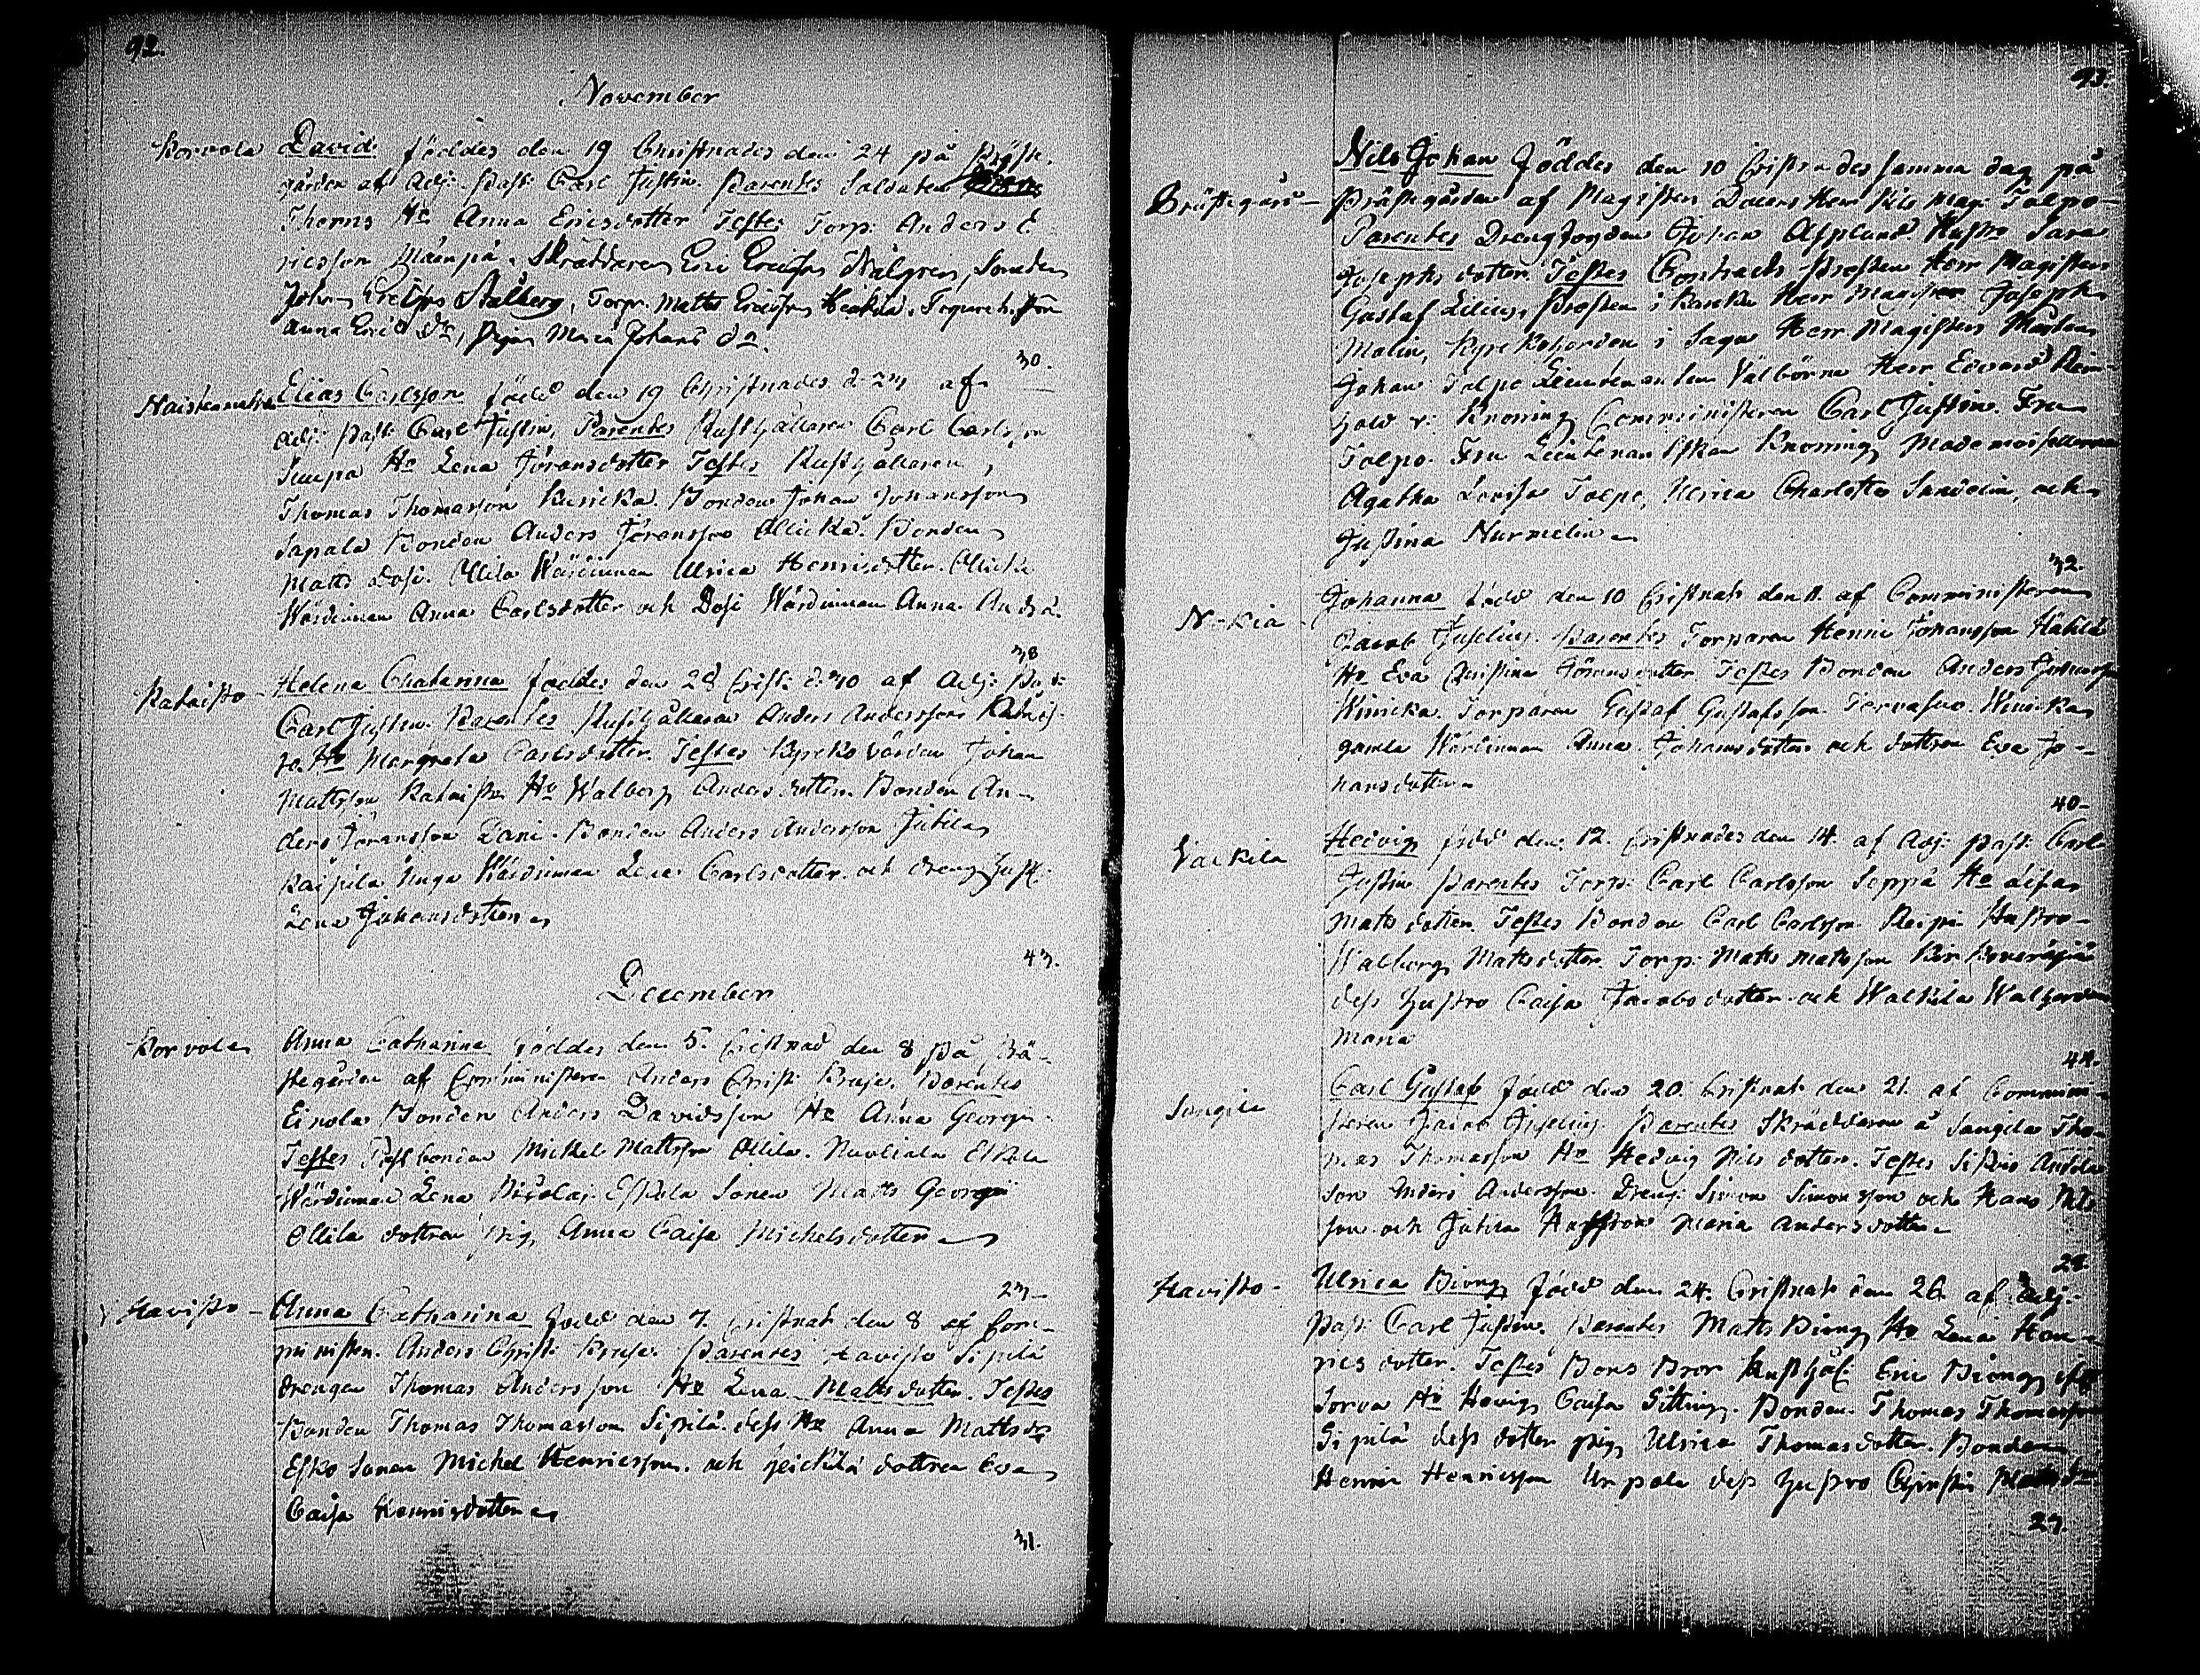 92.
November
Korvola David föddes den 19 Christnades den 24 på Präste
gården af Adj: Past: Carl Justin. Parentes Soldaten
Thorns Ho Anna Ericsdotter Testes Torp: Anders E
ricsson Skräddaren Eric Ericsson Nålgren, Smeden
Johan Stålberg, Torpr. Matts Ericsson Heikkilä.
Anna Erics dr, Pigan Maria Johans dr.
30.
Elias Carlsson född den 19 Christnades d. 24 af
Adj: Past: Carl Justin, Parentes Rusthållaren Carl Carlsson
Ho Lena Jöransdotter Testes Rusthållaren
Thomas Thomasson Bonden Johan Johansson
Sapala Bonden Anders Jöransson Bonden
Matts Ollila Wärdinnan Ulrica Henricsdotter
Wärdinnan Anna Carlsdotter och Wärdinnan Anna Andrs d.
38
Kataisto - Helena Catharina föddes den 28 Crist: d. 30 af Adj: Past:
Carl Justin. Parentes Rusthållaren Anders Andersson Katais-
to. Ho Margreta Carlsdotter. Testes Kyrkovärden Johan
Mattsson Kataisto Ho Walborg Andersdotter. Bonden An-
ders Jöransson Dani. Bonden Anders Andersson Jutila
Unga Wärdinnan Lena Carlsdotter och dreng hust:
Lena Johansdotter
43.
December
Korvola Anna Catharina föddes den 5. Cristnad den 8 på Prä-
stegården af Comministern Anders Christ: Kruse. Parentes
Einola Bonden Anders Davidsson Ho Anna Georgii
Testes Bonden Michel Mattsson Ollila. Eskola
Wärdinnan Lena Nicolai. Eskola Sonen Matts Georgii
Ollila dottren pig. Anna Caisa Michelsdotter
23-
Havisto - Anna Catharina född den 7. Cristnat den 8 af Com-
ministern Anders Christ: Kruse. Parentes Havisto Sipilä
drengen Thomas Andersson Ho Lena Mattsdotter. Testes
Bonden Thomas Thomasson Sipilä dess Ho Anna Matts dr
Esko Sonen Michel Henricsson. och dottren Eva
Caisa Henricsdotter
31.
93.
Prästegård - Nils Johan föddes den 10 Cristnades samma dag på
Prästegården af Magistern Docens Herr Nils Mag: Tolpo-
Parentes Drengfogden Johan Asplund Hustro Sara
Josephs dotter. Testes Contracts Prosten Herr Magistern
Gustaf Lilius, Prosten i Herr Magister Joseph
Molin, Kyrkoherden i Sagu Herr Magistern
Johan Tolpo Lieutenanten Välborne Herr Edvard Rein-
hold v: Knorring Comministern Carl Justin. Fru
Tolpo. Fru Lieutenantskan Knorring Mademoisellerna
Agatha Lovisa Tolpo, Ulrica Charlotta Sandelin, och
Justina Nurmelin
32.
Nokia Johanna född den 10 Cristnat den 11. af Comministern
Jacob Juselius. Parentes Torparen Henric Johansson
Ho Eva Christina Göransdotter. Testes Bonden Anders Johansson
Winicka. Torparen Gustaf Gustafsson Tervasuo. Winicka
gamla Wärdinnan Anna Johansdotter och dottren Eva Jo-
hansdotter
40-
Valkila Hedvig född den 12. Cristnades den 14. af Adj: Past: Carl
Justin. Parentes Torp: Carl Carlsson Seppä Ho Lisa
Matts dotter. Testes Bonden Carl Carlsson Hustro-
Walborg Mattsdotter. Torp: Matts Mattsson
dess hustro Caisa Jacobsdotter och Walkila
Maria
44.
Songila Carl Gustaf född den 20. Cristnat den 21. af Commini-
steren Jacob Juselius. Parentes Skräddaren å Songila Tho-
mas Thomasson Ho Hedvig Nils dotter. Testes
Son Anders Andersson. Dreng: Simon Simonsson och Hans Nils
son och Jutila Hustron Maria Andersdotter
28
Havisto - Ulrica Biong född den 24. Cristnat den 26. af Adj:
Past: Carl Justin. Parentes Matts Biong Ho Lena Hen-
rics dotter. Testes Bror Rusthål: Eric Biong
Sorva Ho Hevig Caisa Sitting. Bonden Thomas Thomasson
Sipilä dess dotter pig. Ulrica Thomasdotter. Bonden
Henric Henricsson Urpola dess hustro Christin Matts dr
27.